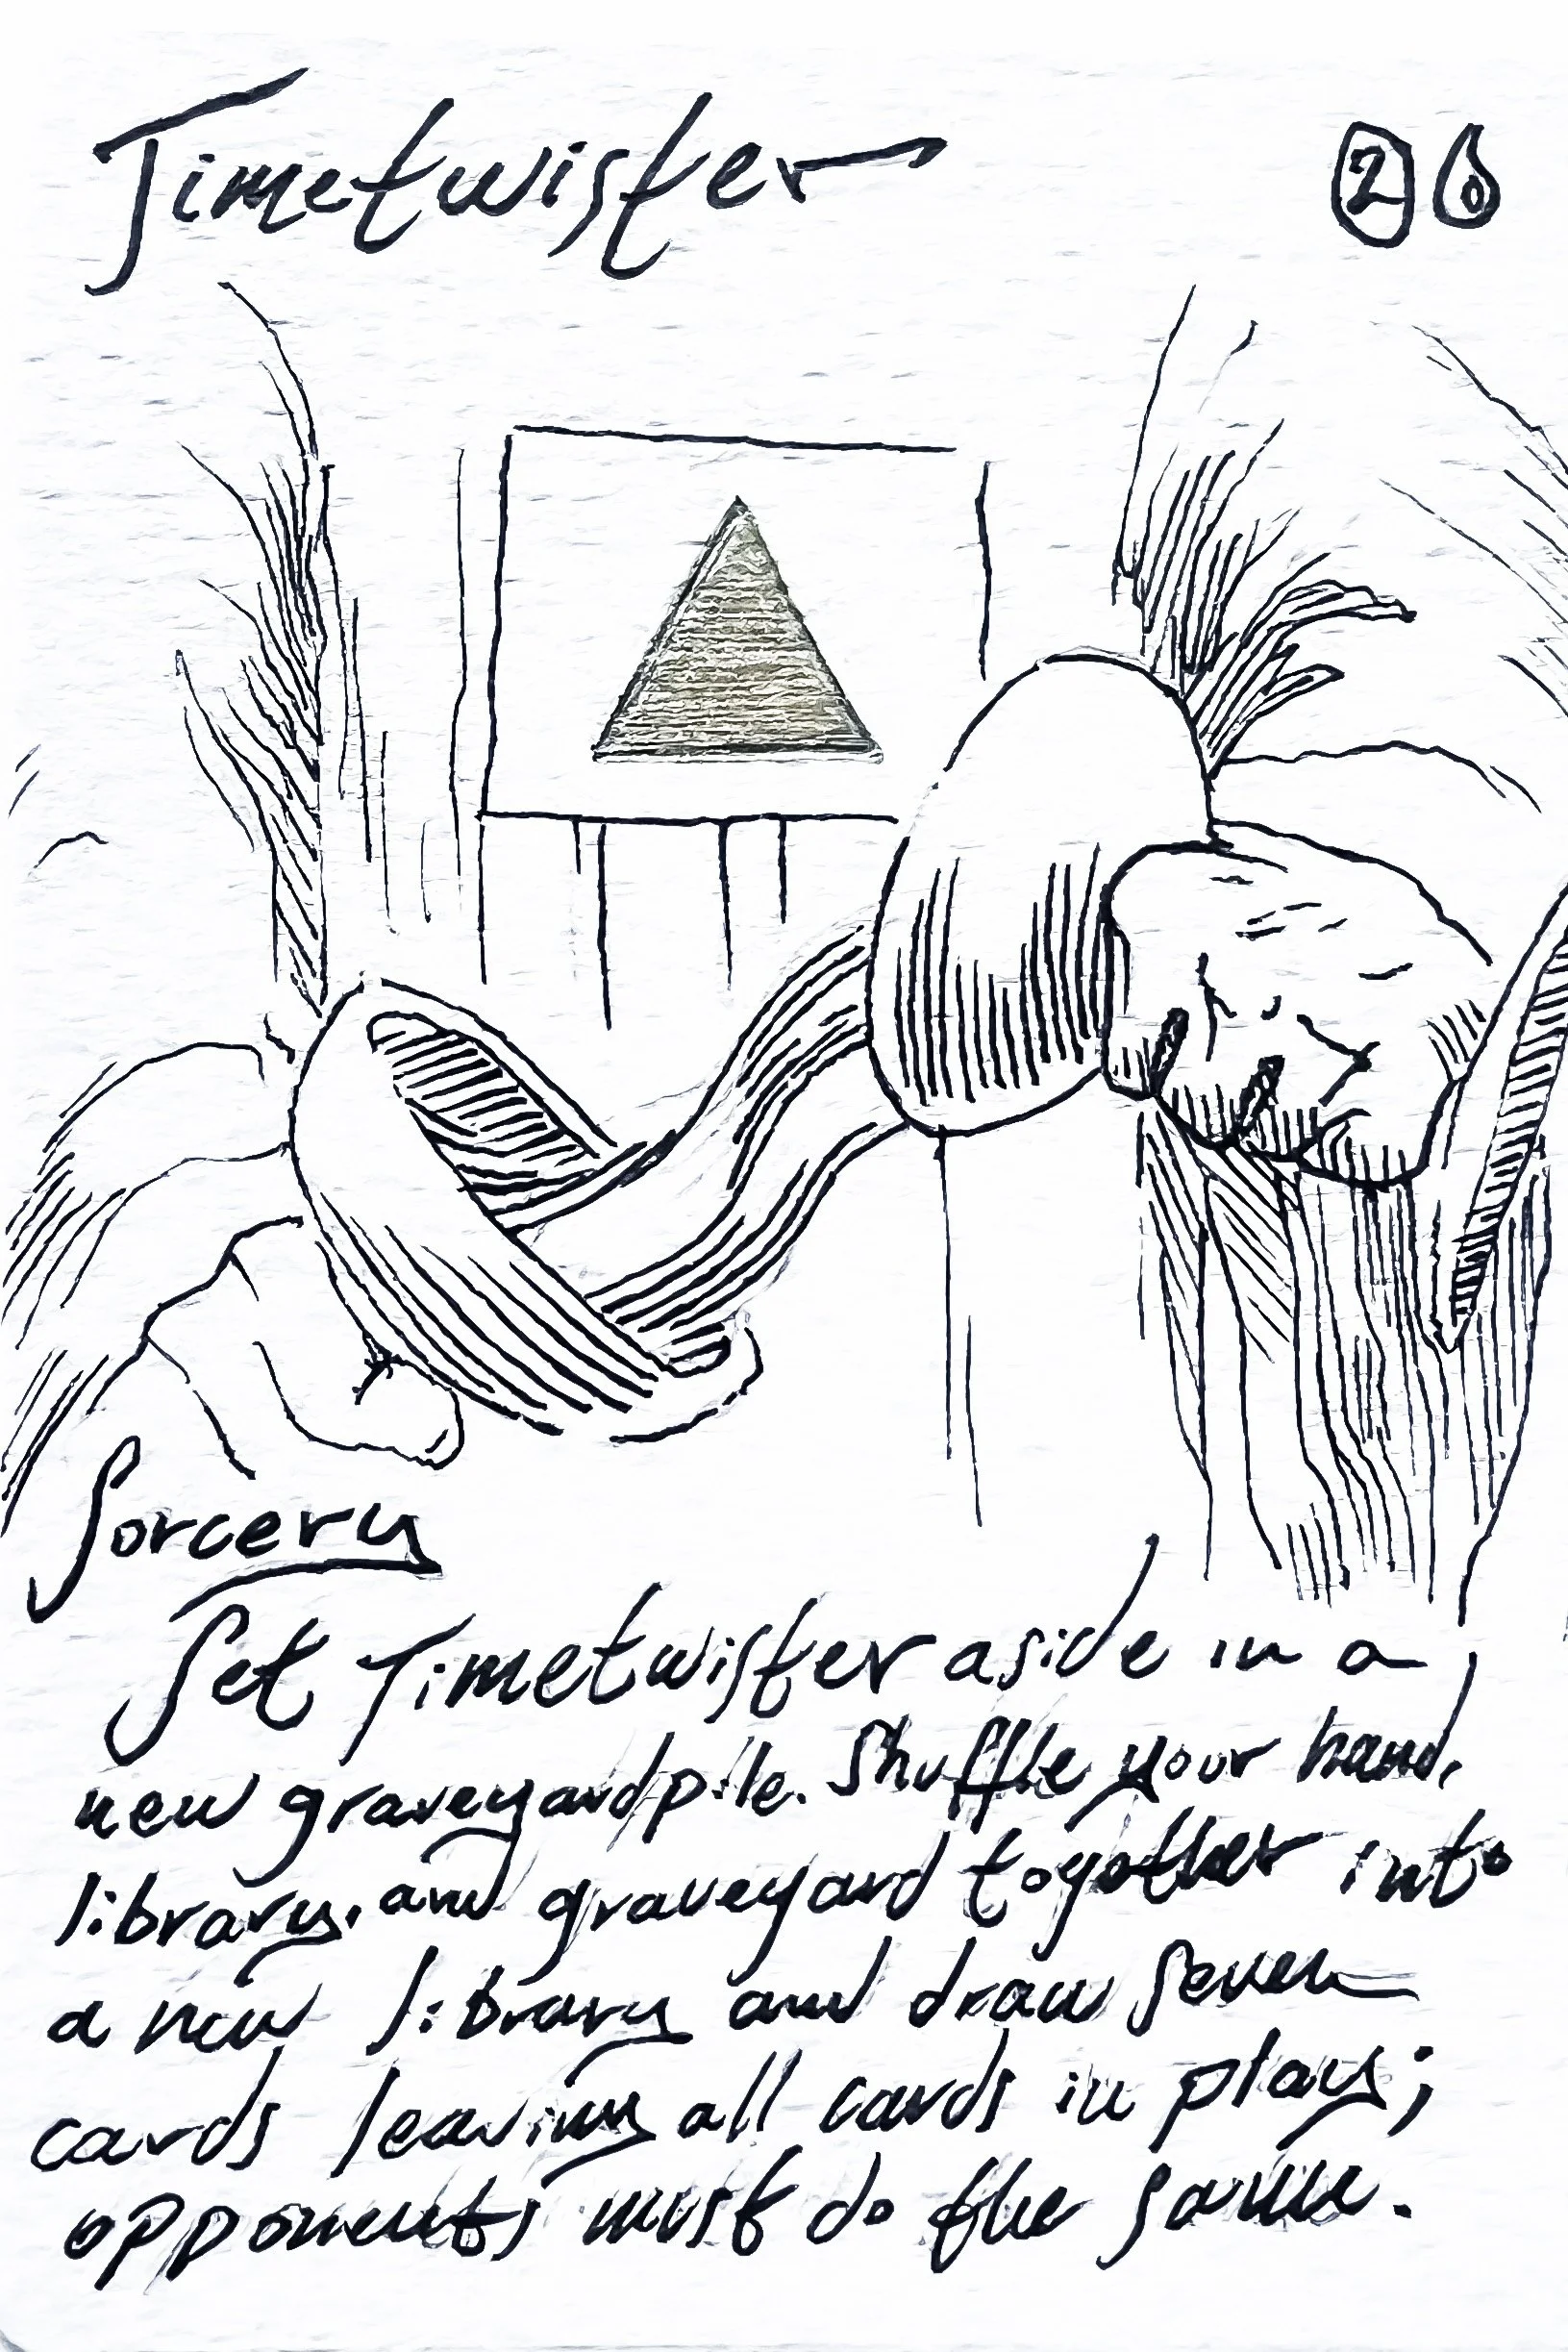 Timetwister 2
Sorcery
Set Timetwister aside in a
new graveyard pile. Shuffle your hand,
library, and graveyard together into
a new library and draw seven
cards leaving all cards in play;
opponents must do the same.